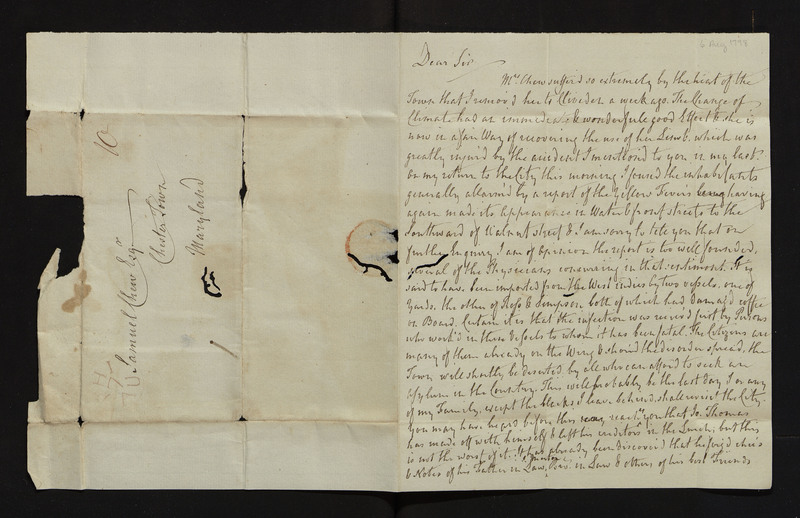 6 Aug 1798
Dear Sir
Mrs Chew suffer'd so extremely by the heat of the
Town that I remov'd her to Cliveden a week ago. The Change of
Climate has an immediate & wonderfull good Effect & she is
now in a fair Way of recovering the use of her Limb. which was
greatly injur'd by the accident I mention'd to you in my last.
on my return to the City this morning I found the inhabitants
generally allarm'd by a report of the Yellow Fever's having
again made its appearance in Water & front streets to the
Southward of Walnut street & I am sorry to tell you that on
further Enquiry I am of opinion the report is too well founded,
several of the Physicians concurring in that sentiment. It is
said to have been imported from the West indies by two vessels, one of
Yards. the other of Ross & Simpson both of which had damag'd coffee
on Board. Certain it is that the infection was receiv'd first by Persons
who work'd in these Vessels to whom it has been fatal. The Citizens are
many of them already on the Wing & should the disorder spread, the
Town will shortly be deserted by all who can afford to seek an
asylum in the Country. This will probably be the last day I or any
of my Family, except the blacks I leave behind shall visit the City.
You may have heard before this reach you that Jo. Thomas
has made off with himself & left his creditors in the Lurch; but this
is not the worst of it. It has already been discover'd that he forg'd checks
& Notes of his Father in Law, Bro. in Law & others of his best Friends
10
Samuel Chew Esqr
Chester Town
Maryland